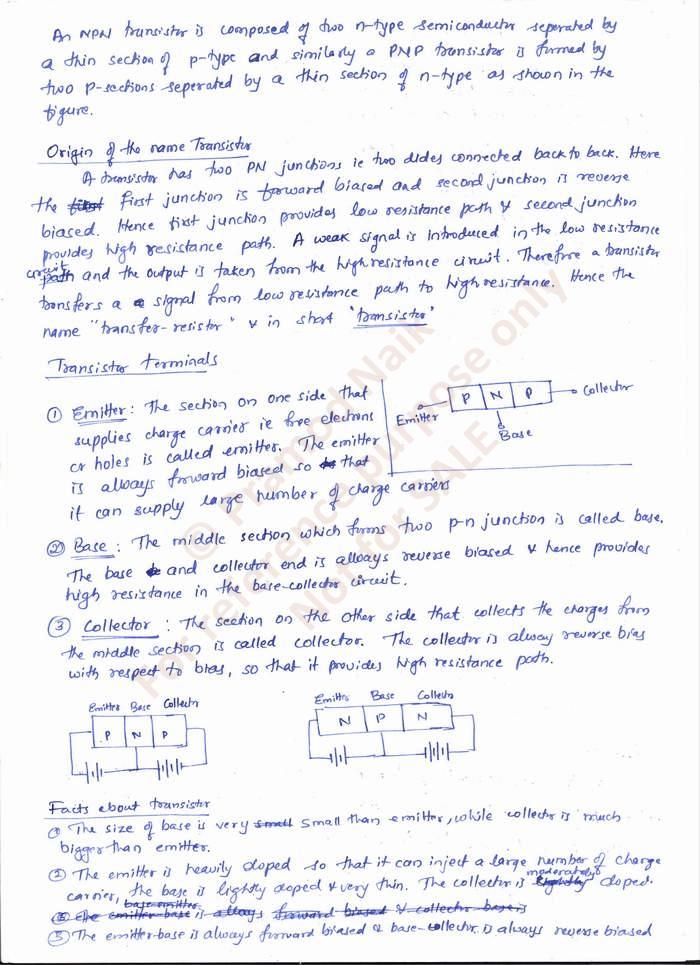 An NPN transistor is composed of two n-type semiconductor seperated by
a thin section of p-type and similarly a PNP transistor is formed by
two P-sections seperated by a thin section of n-type as shown in the
figure.
Origin of the name Transistor
A transistor has two PN junctions ie two diodes connected back to back. Here
the first junction is forward biased and second junction is reverse
biased. Hence first junction provides low resistance path & second junction
provides high resistance path. A weak signal is introduced in the low resistance
circuit and the output is taken from the high resistance circuit. Therefore a transistor
transfers a signal from low resistance path to high resistance. Hence the
name "transfer-resistor" & in short "transistor"
Transistor terminals
① Emitter: The section on one side that
supplies charge carrier ie free electrons
or holes is called emitter. The emitter
is always forward biased so that
it can supply large number of charge carriers
Emitter P N P Collector
Base
② Base: The middle section which forms two p-n junction is called base.
The base and collector end is allways reverse biased & hence provides
high resistance in the base-collector circuit.
③ Collector: The section on the other side that collects the charges from
the middle section is called collector. The collector is alway reverse bias
with respect to bias, so that it provides high resistance path.
Emitter Base Collector
P N P
Emitter Base Collector
N P N
Facts about transistor
① The size of base is very small than emitter, while collector is much
bigger than emitter.
② The emitter is heavily doped so that it can inject a large number of charge
carrier, the base is lightly doped & very thin. The collector is moderately doped.
③ The emitter-base is always forward biased & base-collector is always reverse biased
© Pramod Naik
For reference purpose only
Not for SALE